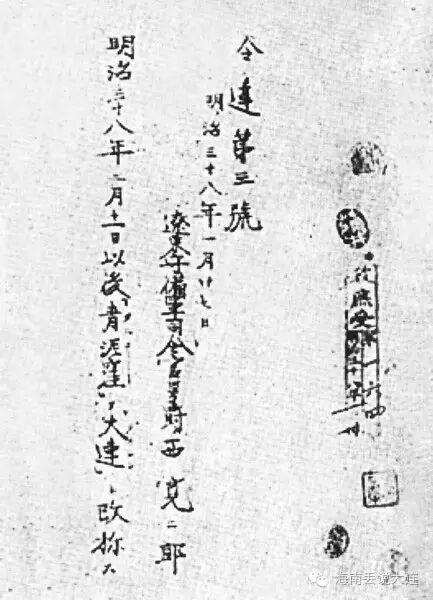 令達第三號
明治三十八年一月廿七日
遼東守備軍司令官男爵西寛二郎
明治三十八年二月十一日以後青泥窪ヲ大連ト改称ス
海南丢 大连